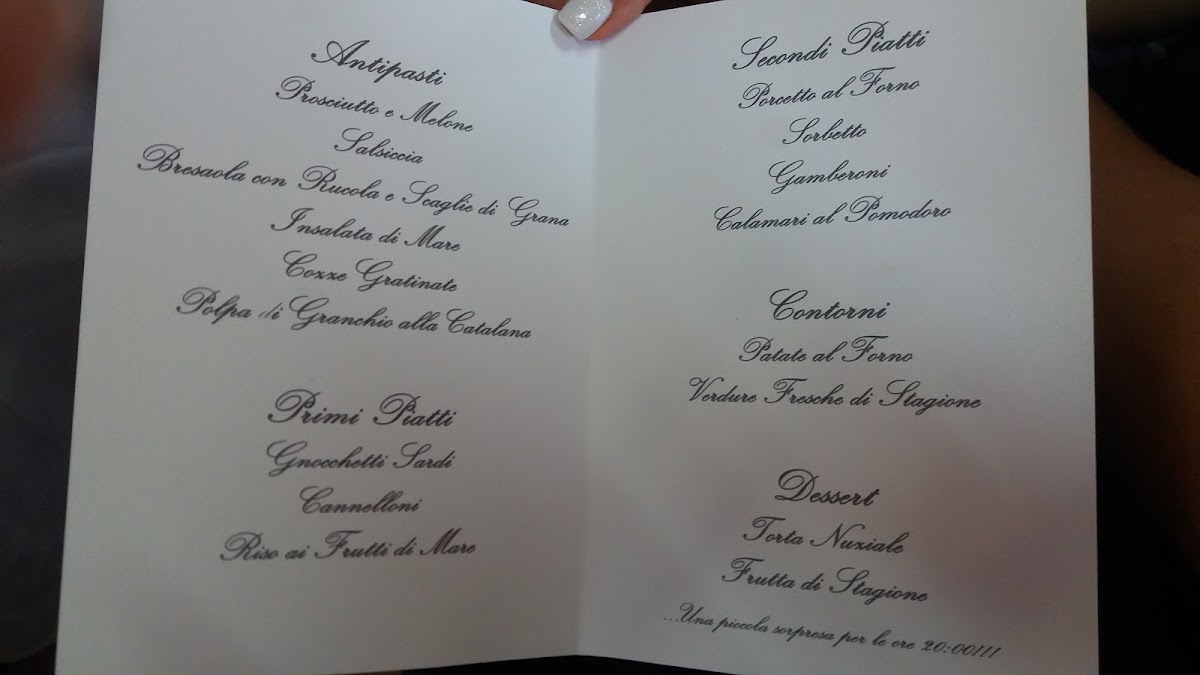 Antipasti
Prosciutto e Melone
Salsiccia
Bresaola con Rucola e Scaglie di Grana
Insalata di Mare
Cozze Gratinate
Polpa di Granchio alla Catalana
Primi Piatti
Gnocchetti Sardi
Cannelloni
Riso ai Frutti di Mare
Secondi Piatti
Porcetto al Forno
Sorbetto
Gamberoni
Calamari al Pomodoro
Contorni
Patate al Forno
Verdure Fresche di Stagione
Dessert
Torta Nuziale
Frutta di Stagione
...Una piccola sorpresa per le ore 20:00!!!